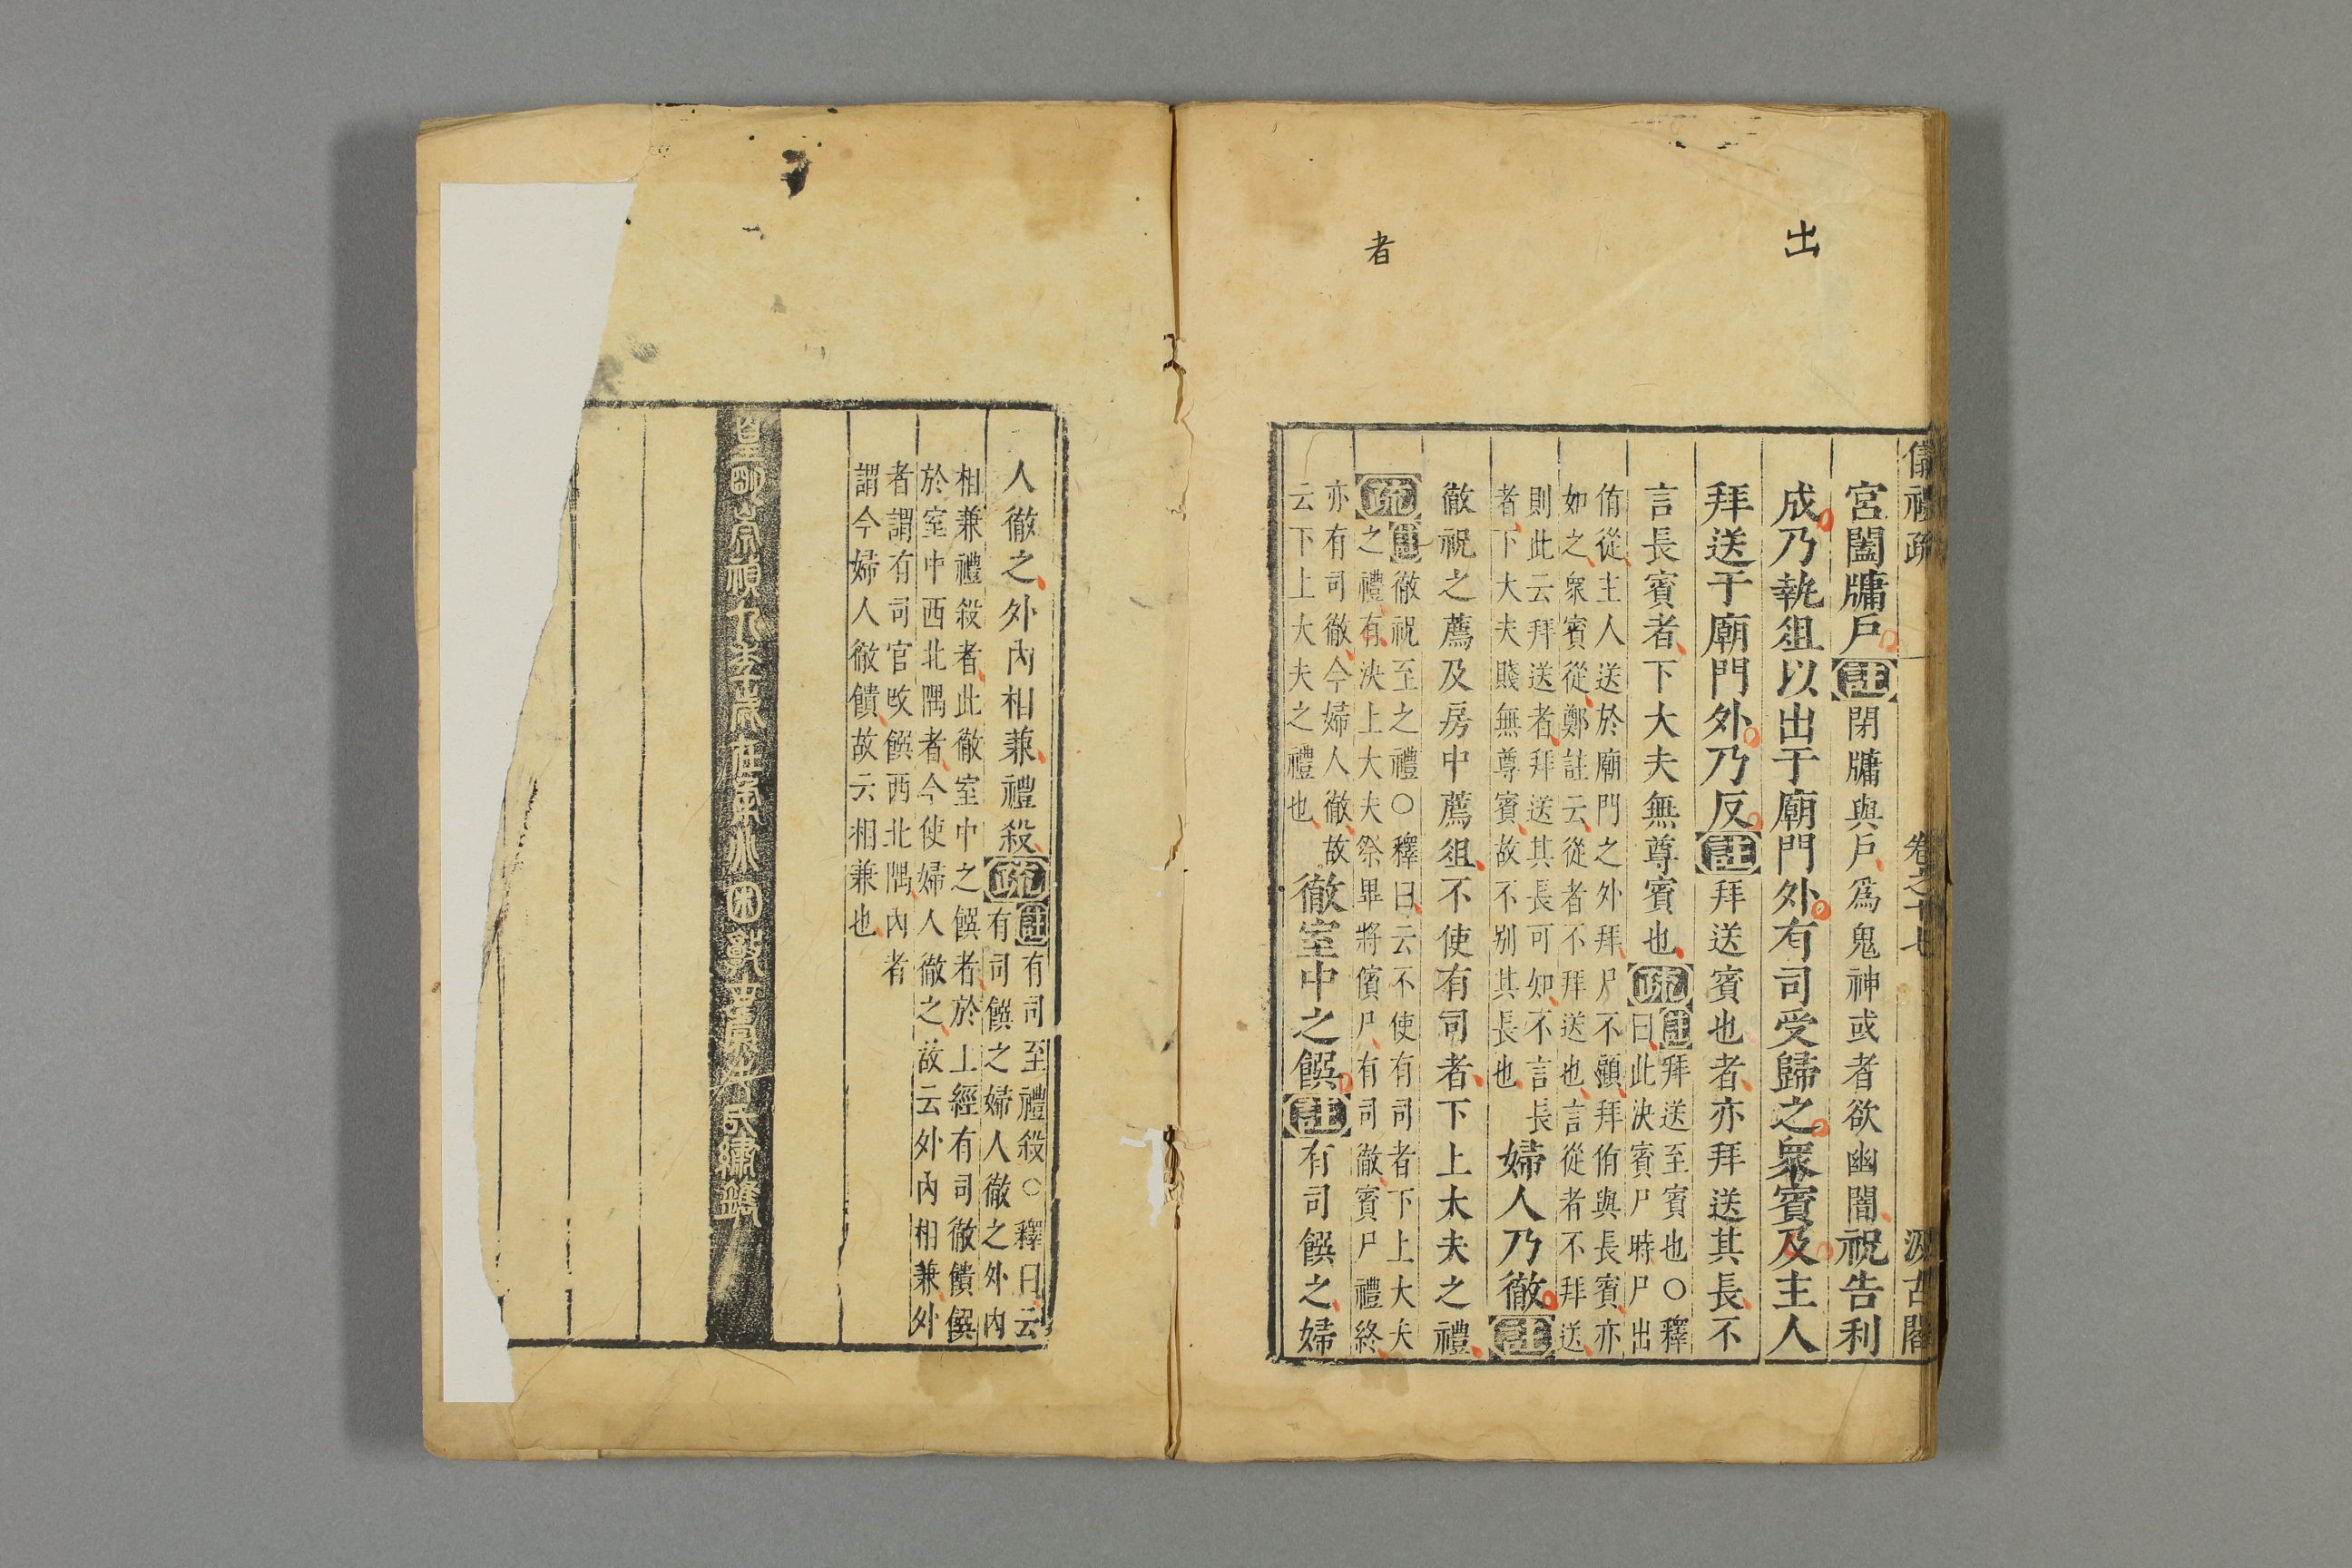 出
者
儀禮疏 卷之十七 汲古閣
宮闔牖戶註閉牖與戶爲鬼神或者欲幽闇祝告利
成乃執俎以出于廟門外有司受歸之衆賓及主人
拜送于廟門外乃反註拜送賓也者亦拜送其長不
言長賓者下大夫無尊賓也疏註拜送至賓也○釋
曰此決賓尸時尸出
侑從主人送於廟門之外拜尸不顧拜侑與長賓亦
如之衆賓從鄭註云從者不拜送也言從者不拜送
則此云拜送者拜送其長可知不言長
者下大夫賤無尊賓故不別其長也
婦人乃徹註
徹祝之薦及房中薦俎不使有司者下上大夫之禮
疏註徹祝至之禮○釋曰云不使有司者下上大夫
之禮有決上大夫祭畢將儐尸有司徹賓尸禮終
亦有司徹今婦人徹故
云下上大夫之禮也
徹室中之饌註有司饌之婦
人徹之外內相兼禮殺疏註有司至禮殺○釋曰云
有司饌之婦人徹之外內
相兼禮殺者此徹室中之饌者於上經有司徹饋饌
於室中西北隅者今使婦人徹之故云外內相兼外
者謂有司官改饌西北隅內者
謂今婦人徹饋故云相兼也
皇明崇禎九年歲在柔兆困敦古虞毛氏繡鐫